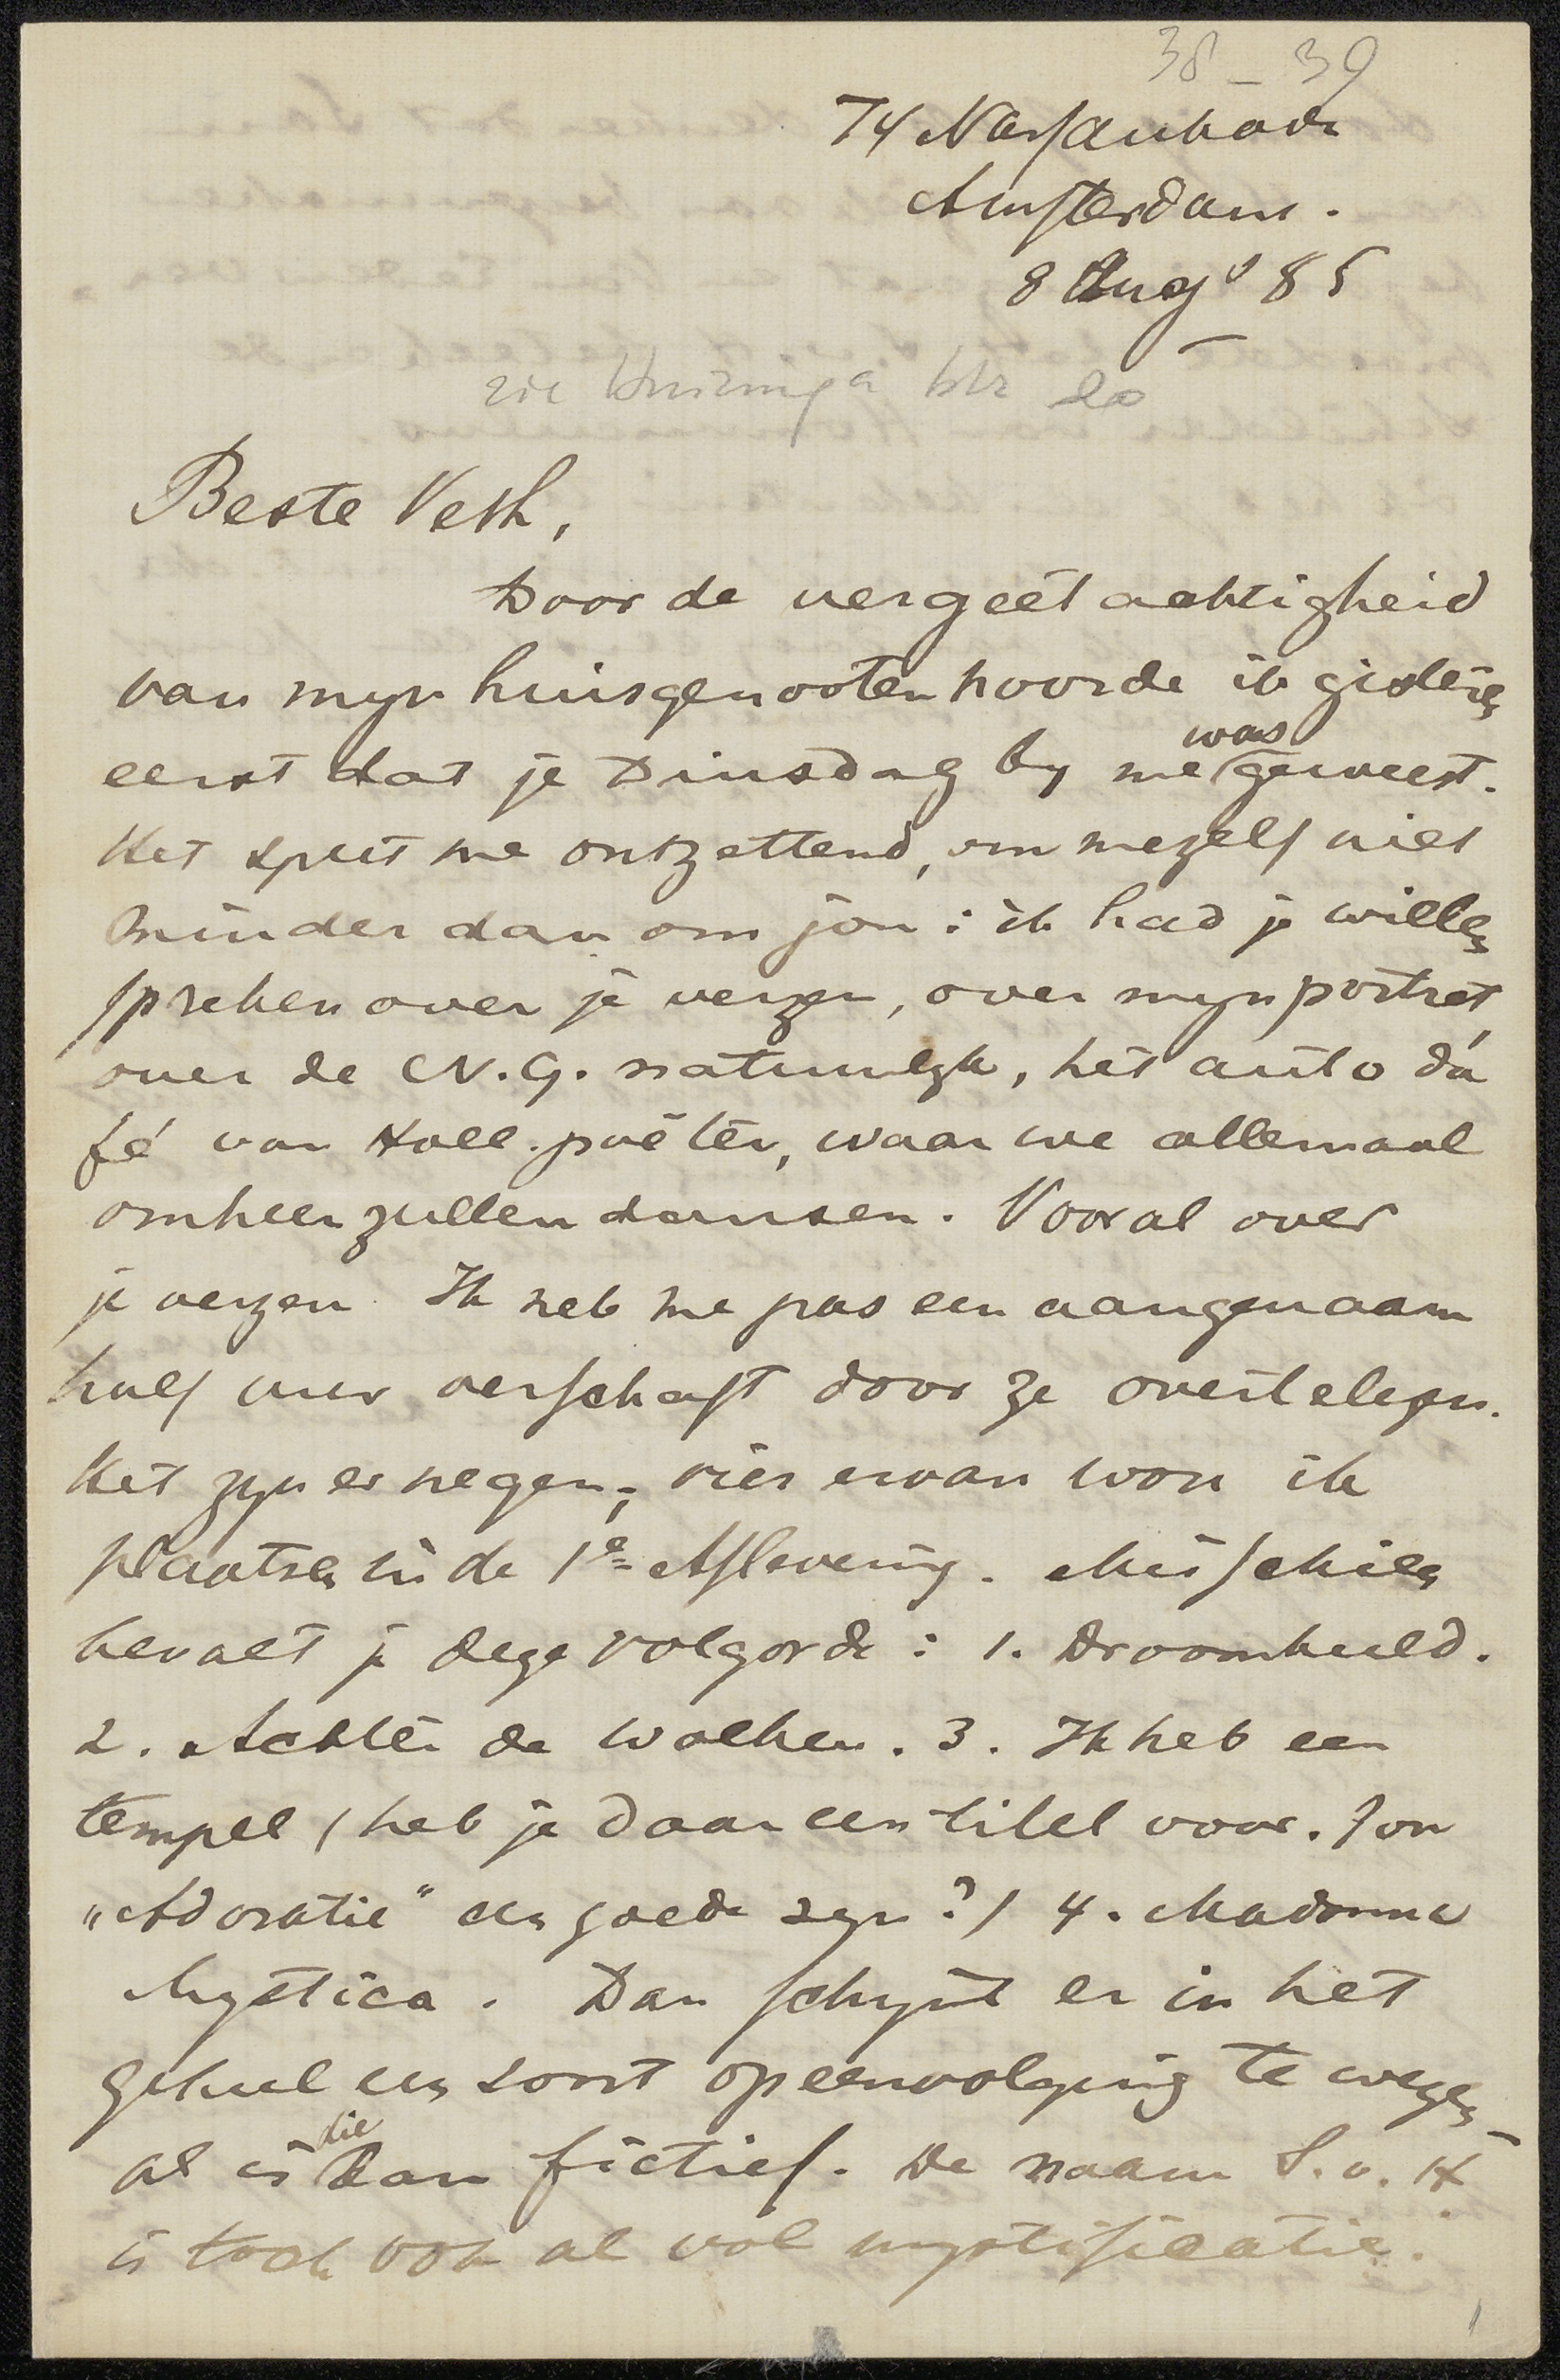 38 – 39
74 Nassaukade
Amsterdam.
8 Aug' 85
zie Huizinga blz 20
Beste Veth,
Door de vergeetachtigheid
van myn huisgenooten hoorde ik gisteren
eerst dat je Dinsdag by me was geweest.
Het spijt me ontzettend, om mezelf niet
minder dan om jou: ik had je willen
spreken over je verzen, over myn portret,
over de N.G. natuurlyk, het auto da
fé van Holl. poëten, waar we allemaal
omheen zullen dansen. Vooral over
je verzen. Ik heb me pas een aangenaam
half uur verschaft door ze overtelezen.
Het zyn er negen; vier ervan wou ik
plaatsen in de 1e Aflevering. Misschien
bevalt je deze volgorde: 1. Droombeeld.
2. Achter de wolken. 3. Ik heb een
tempel (heb je daar een titel voor. Zou
„Adoratie" een goede zyn?) 4. Madonna
Mystica. Dan schynt er in het
geheel een soort opeenvolging te wezen,
al is die dan fictief. De naam S. v. H.
is toch ook al vol mystificatie.